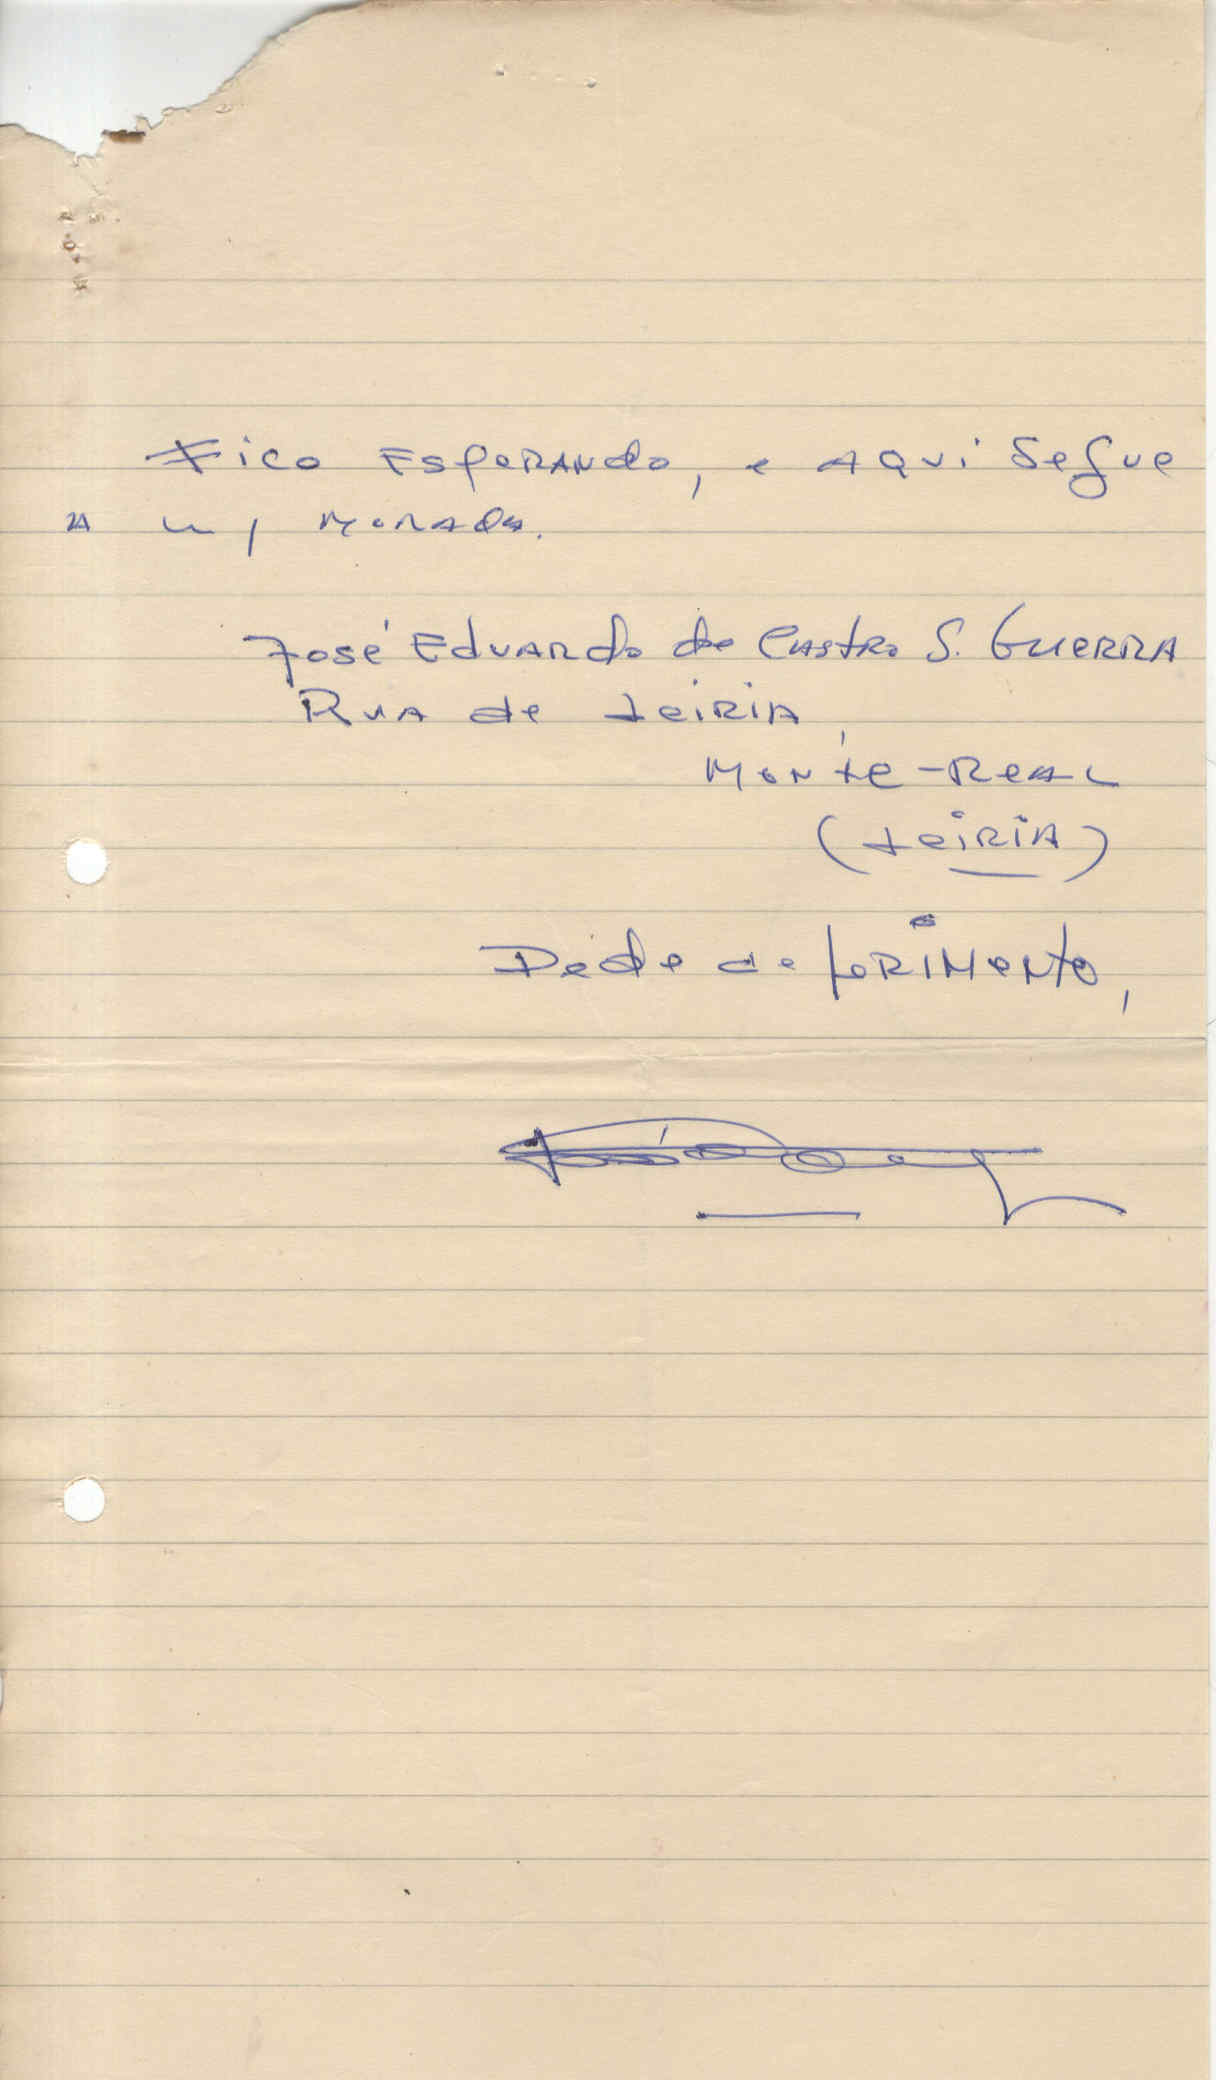 Fico Esperando, e Aqui segue
a m/ morada.
José Eduardo de Castro S. Guerra
Rua de Leiria,
Monte-Real
(Leiria)
Pede deferimento,